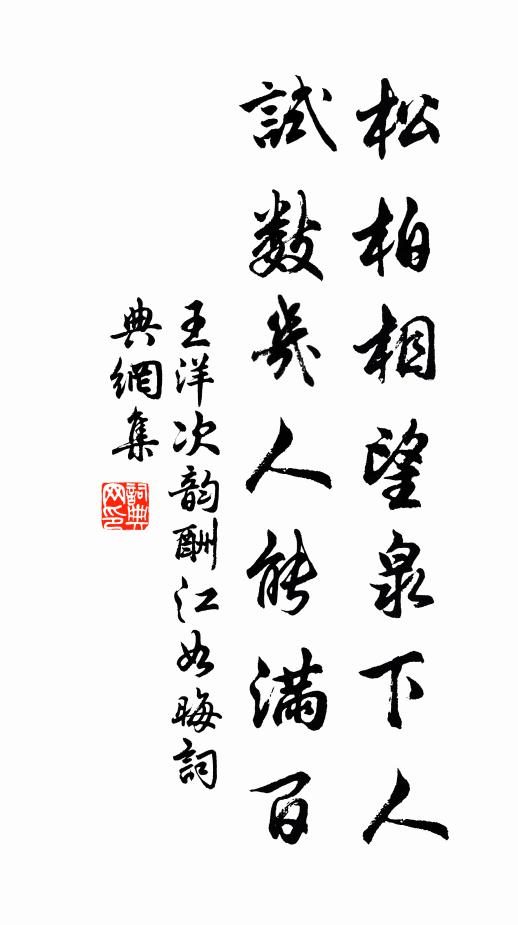 松柏相望泉下人
試數幾人能滿百
王洋次韵酬江如晦詞
典網集
詞典
网印